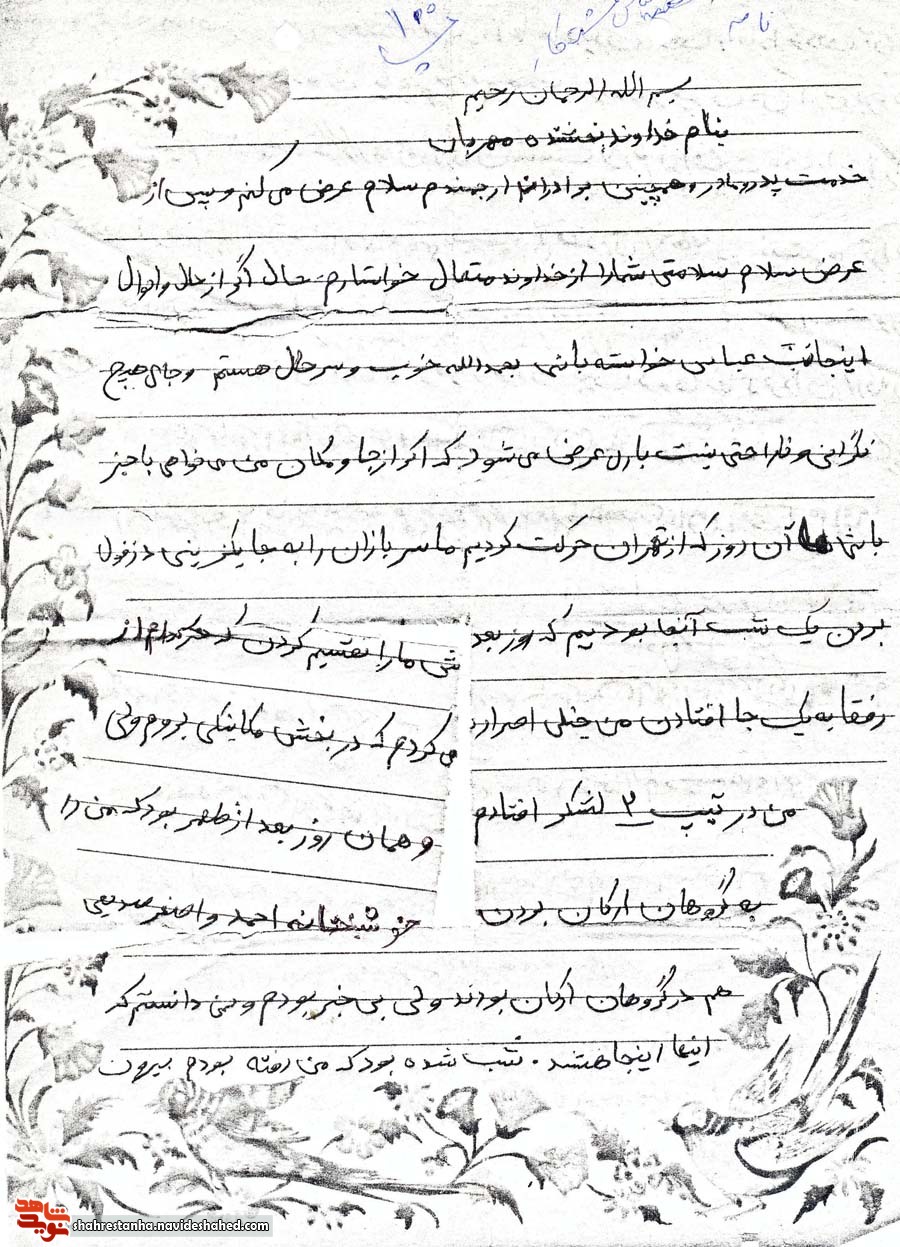 نامه
بسم الله الرحمان رحیم
بنام خداوند بخشنده مهربان
خدمت پدر و مادر و همچنین برادران ارجمندم سلام عرض می کنم و پس از
عرض سلام سلامتی شما را از خداوند متعال خواستارم حال اگر از حال واحوال
اینجانب عباس خواسته باشی بحمدالله خوب و سرحال هستم و جای هیچ
نگرانی و ناراحتی نیست باری عرض می شود که اگر از جا و مکان من می خواهی با خبر
باشی آن روز که از تهران حرکت کردیم ما سربازان را به جایگزینی دزفول
بردن یک شب آنجا بودیم که روز بعد ش ما را تقسیم کردن که هرکدام از
رفقا به یک جا افتادن من خیلی اصرار می کردم که در بخش مکانیکی بروم ولی
من در تیپ ۲ لشکر افتادم و همان روز بعد از ظهر بود که من را
به گروهان ارکان بردن خوشبختانه احمد و اصغر
هم در گروهان ارکان بودند ولی بی خبر بودم و نمی دانستم که
اینها اینجا هستند . شب شده بود که من رفته بودم بیرون
نوید شاهد
shahrestanha.navideshahed.com